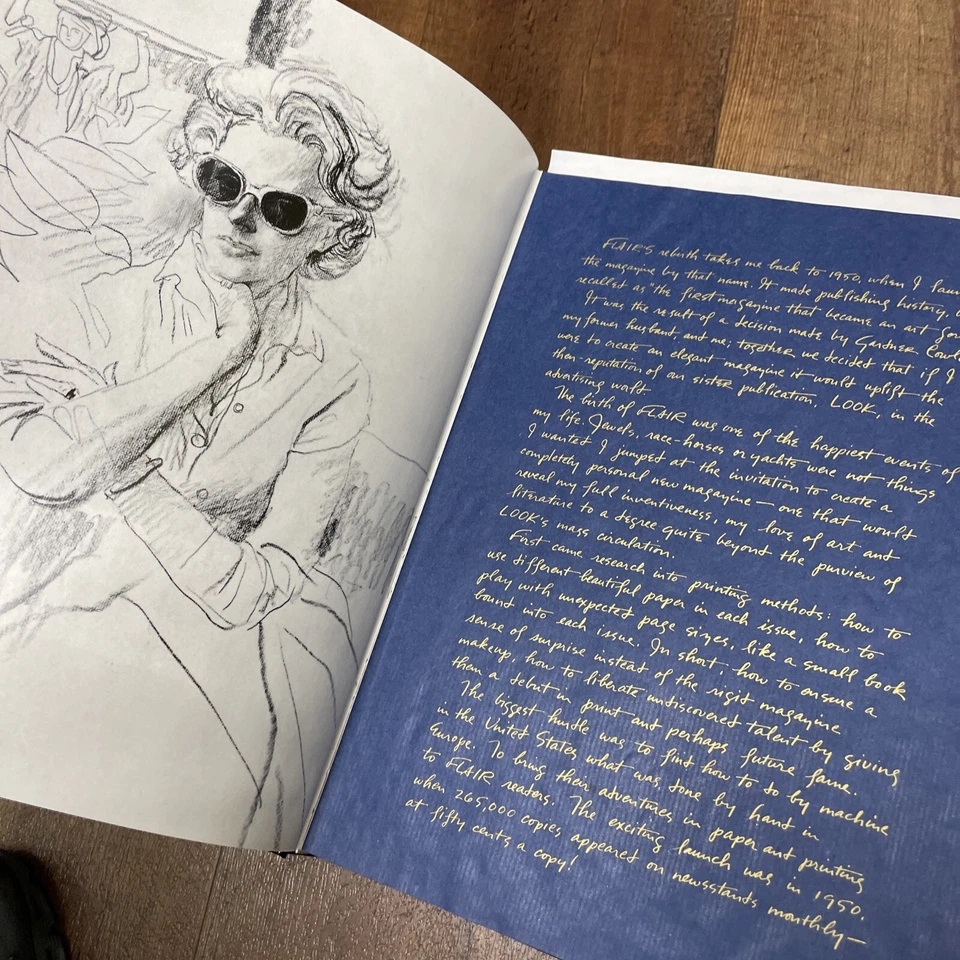 FLAIR'S rebirth takes me back to 1950, when I
the magazine by that name. It made publishing history,
recalled as "the first magazine that became an art
It was the result of a decision made by Gardner
my former husband, and me; together we decided that if I
were to create an elegant magazine it would uplift the
then-reputation of our sister publication, LOOK, in the
advertising world.
The birth of FLAIR was one of the happiest events of
my life. Jewels, race-horses or yachts were not things
I wanted. I jumped at the invitation to create a
completely personal new magazine — one that would
reveal my full inventiveness, my love of art and
literature to a degree quite beyond the purview of
LOOK's mass circulation.
First came research into printing methods: how to
use different beautiful paper in each issue, how to
play with unexpected page sizes, like a small book
bound into each issue. In short, how to ensure a
sense of surprise instead of the rigid magazine
makeup, how to liberate undiscovered talent by giving
them a debut in print and perhaps future fame.
The biggest hurdle was to find how to do by machine
in the United States what was done by hand in
Europe. To bring their adventures in paper and printing
to FLAIR readers. The exciting launch was in 1950.
when 265,000 copies appeared on newsstands monthly—
at fifty cents a copy!